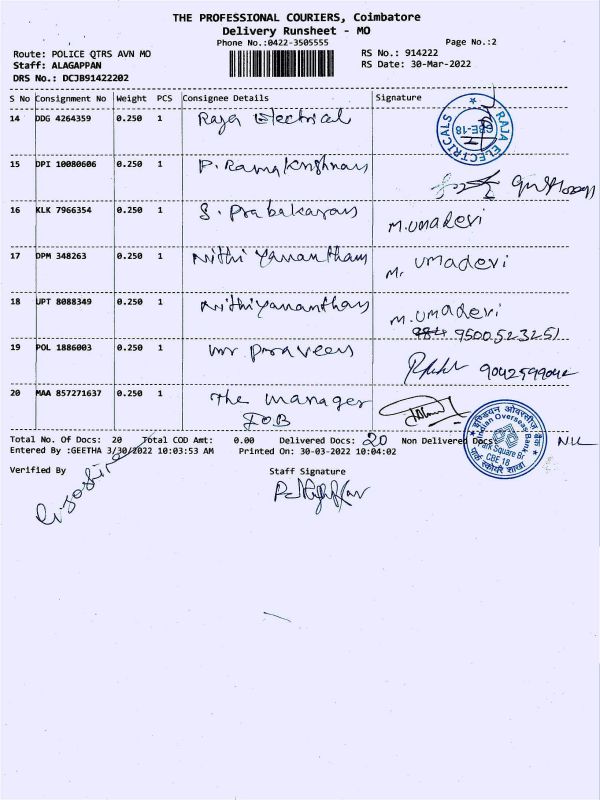 THE PROFESSIONAL COURIERS, Coimbatore
Delivery Runsheet - MO
Phone No.:0422-3505555 Page No.:2
Route: POLICE QTRS AVN MO RS No.: 914222
Staff: ALAGAPPAN RS Date: 30-Mar-2022
DRS No.: DCJB91422202
S No Consignment No Weight PCS Consignee Details Signature
14 DDG 4264359 0.250 1 Raja Electrical
RAJA ELECTRICALS CBE-18
15 DPI 10080606 0.250 1 P. Ramakrishnan
16 KLK 7966354 0.250 1 S. Prabakaran M.Umadevi
17 DPM 348263 0.250 1 Nithiyanantham M. Umadevi
18 UPT 8088349 0.250 1 Nithiyanantham M.Umadevi
9500523251
19 POL 1886003 0.250 1 Mr Praveen
20 MAA 857271637 0.250 1 The Manager
IOB
इण्डियन ओवरसीज़ बैंक
Indian Overseas Bank
Park Square Br
CBE 18
पार्क स्क्वेयर शाखा
Total No. Of Docs: 20 Total COD Amt: 0.00 Delivered Docs: 20 Non Delivered Docs NIL
Entered By :GEETHA 3/30/2022 10:03:53 AM Printed On: 30-03-2022 10:04:02
Verified By Staff Signature